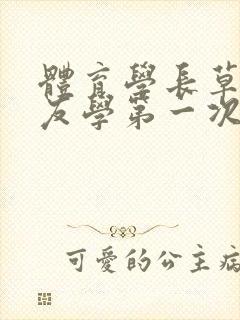 體育學長草
友學第一次
可愛的公主病